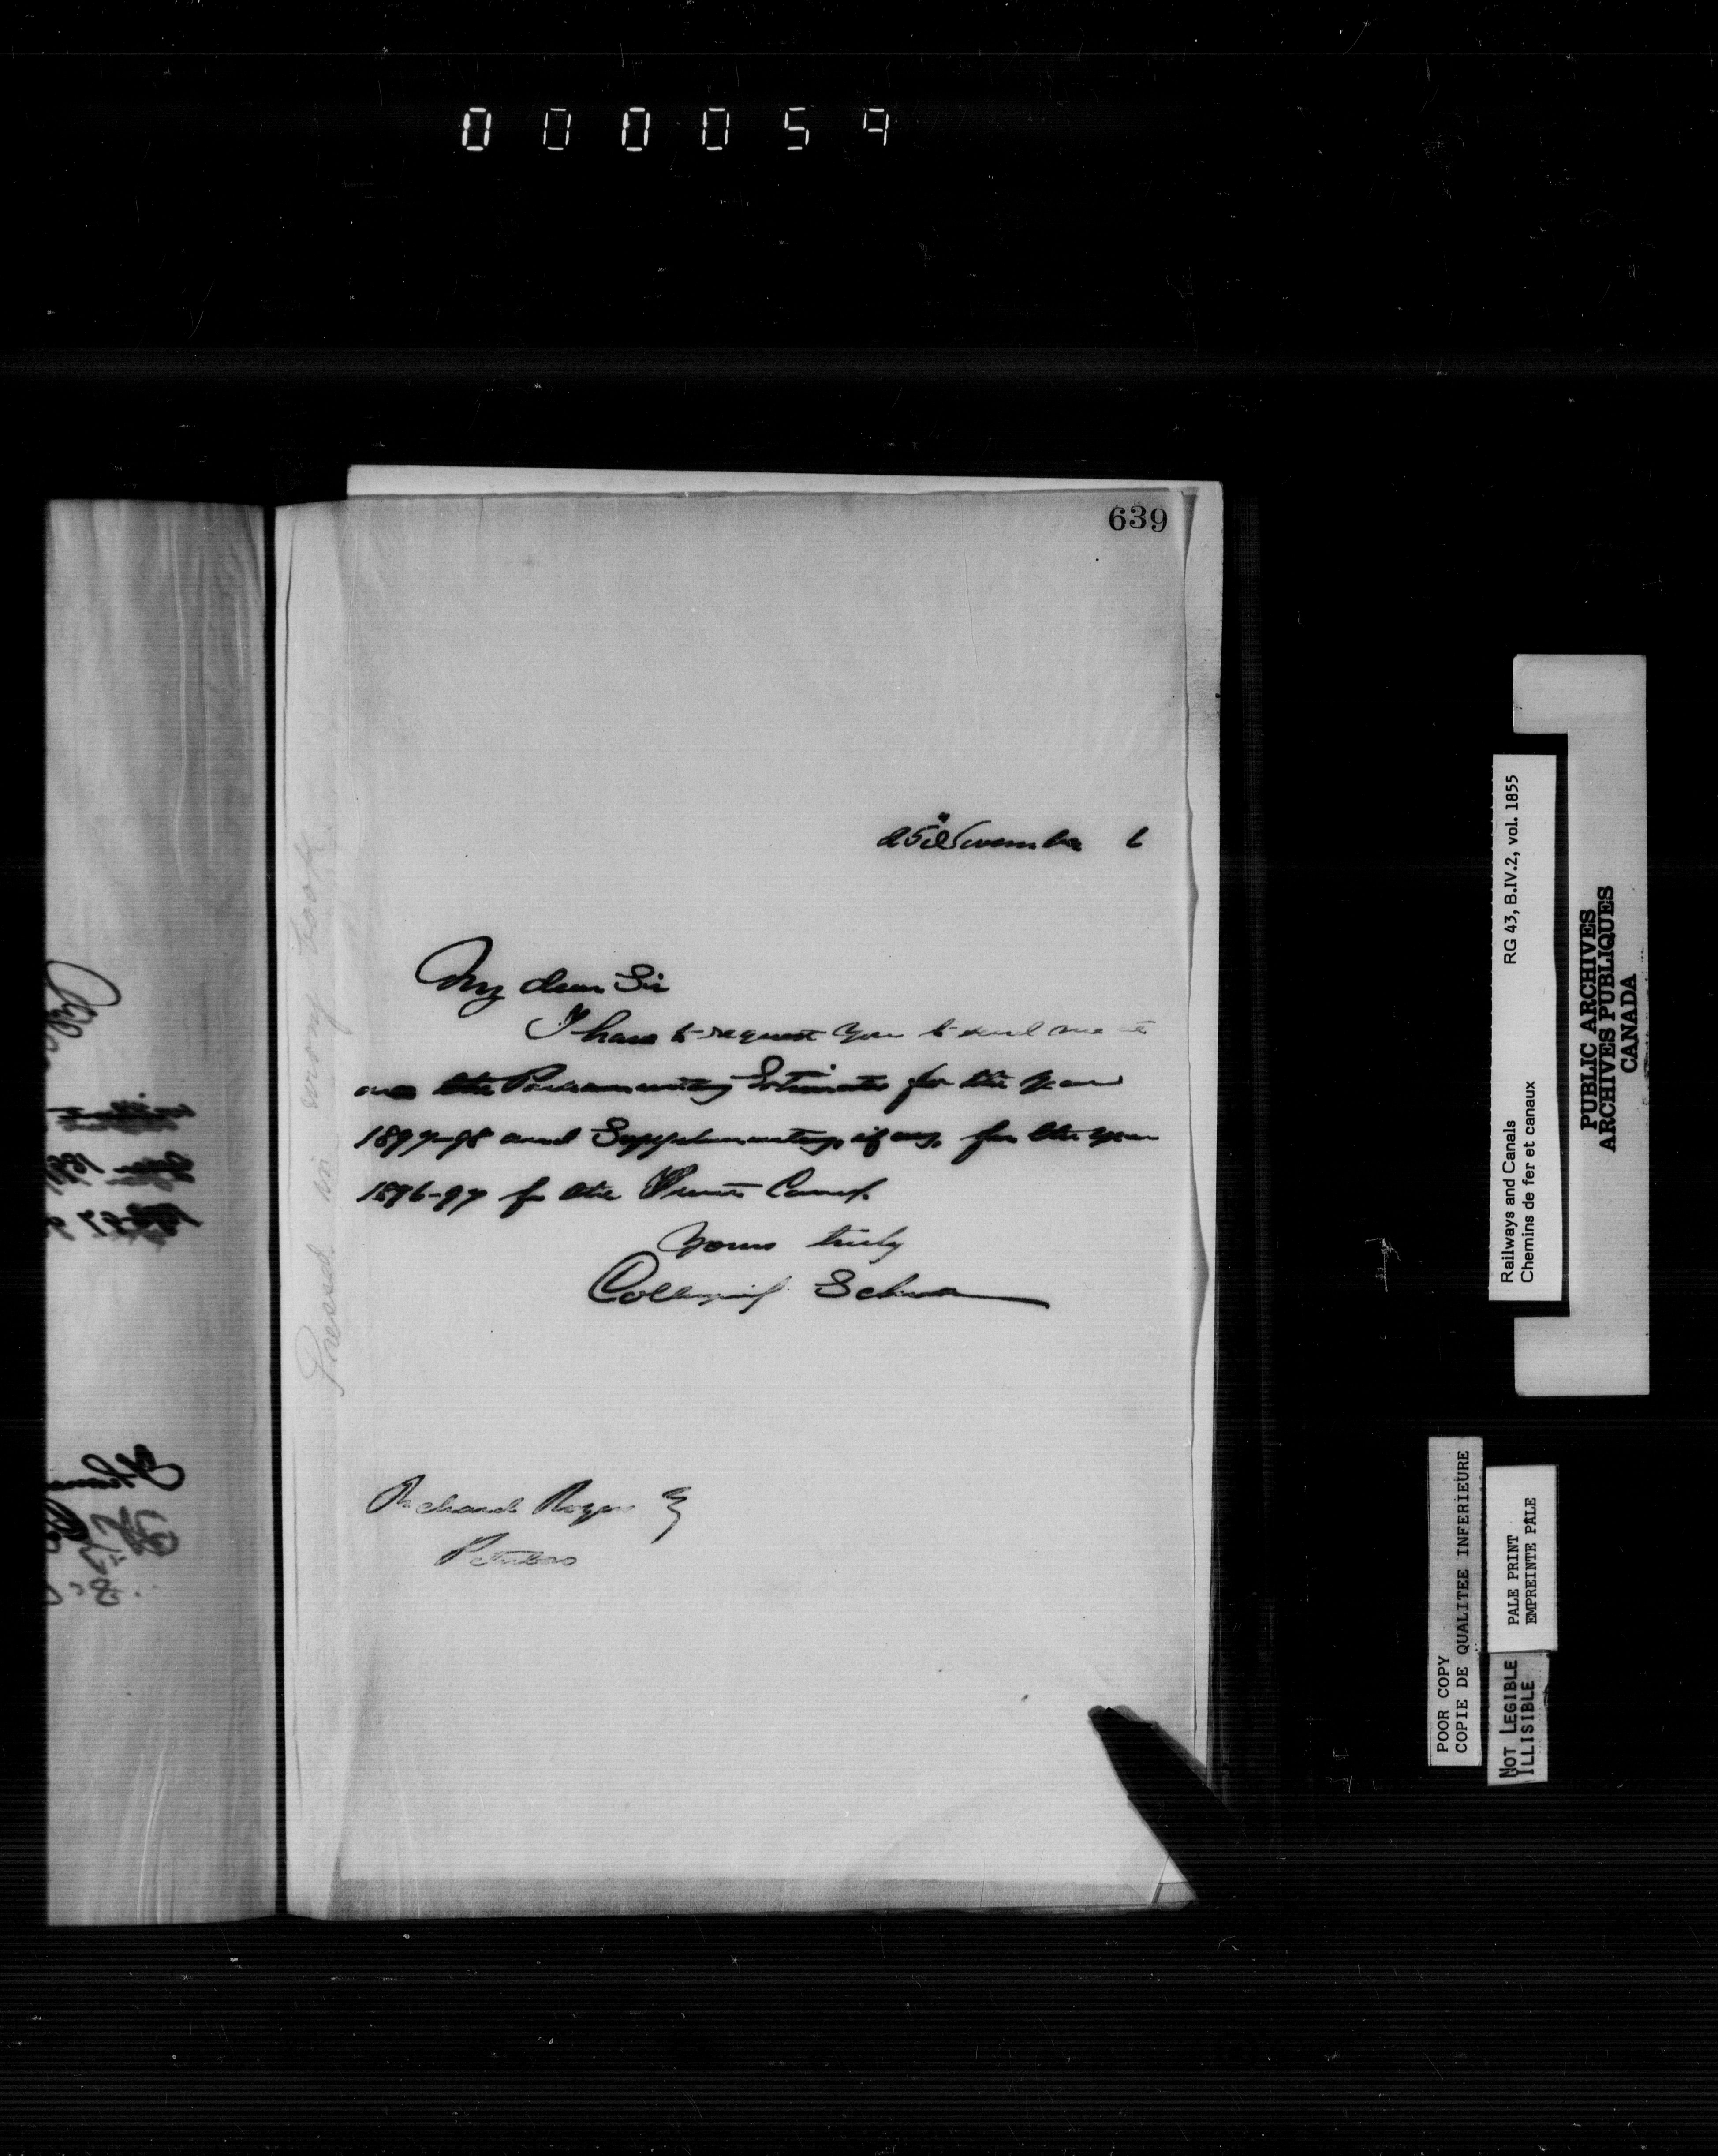 000054
639
25th November 6
My dear Sir
I have to request you to send me at
once the Parliamentary Estimates for the year
1897-98 and Supplementary, if any, for the year
1896-97 for the Trent Canal.
Yours truly
Collingwood Schreiber
Richard Rogers Esq
Peterboro
Pressed in wrong book
Railways and Canals RG 43, B.IV.2, vol. 1855
Chemins de fer et canaux
PUBLIC ARCHIVES
ARCHIVES PUBLIQUES
CANADA
POOR COPY
COPIE DE QUALITEE INFERIEURE
PALE PRINT
EMPREINTE PÂLE
NOT LEGIBLE
ILLISIBLE